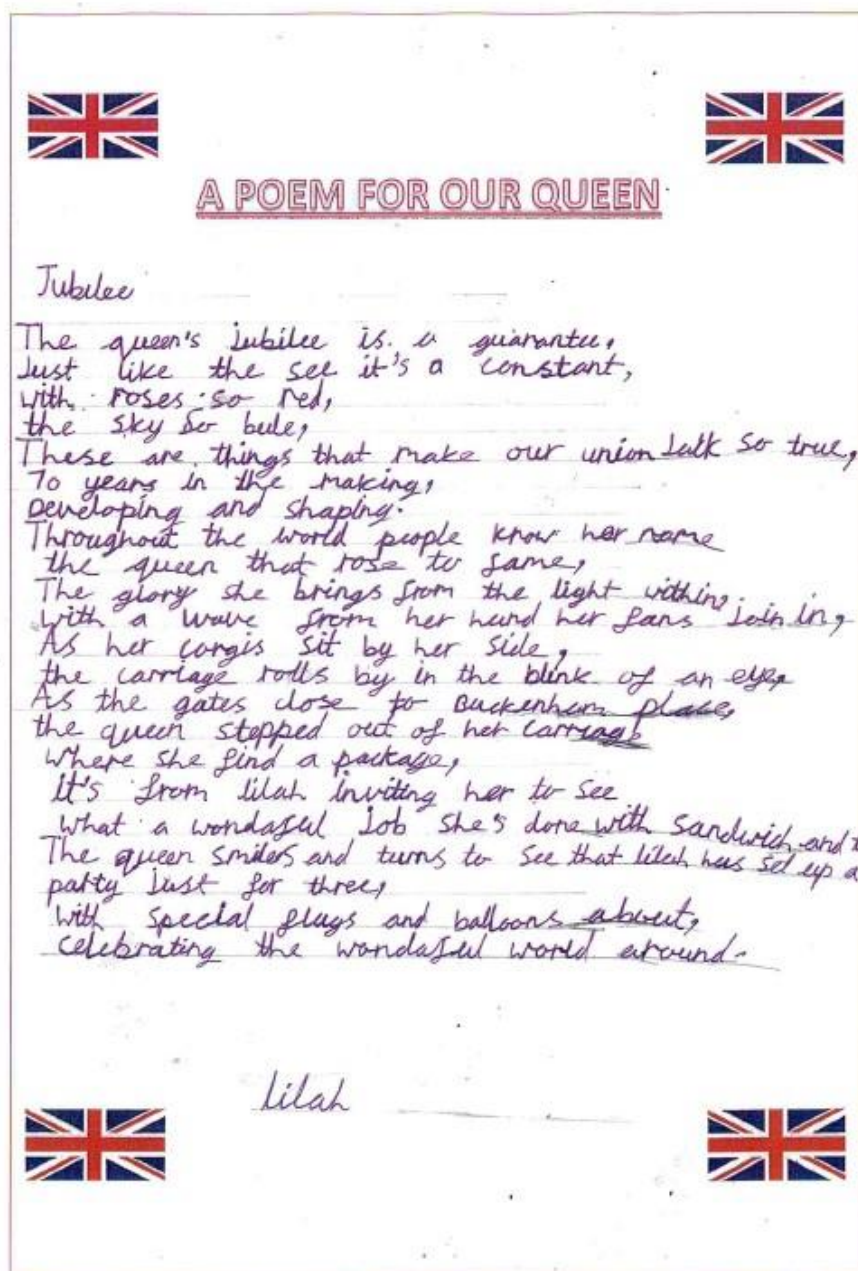 A POEM FOR OUR QUEEN
Jubilee
The queen's jubilee is a guarantee,
Just like the see it's a constant,
with roses so red,
the sky so bule,
These are things that make our union Jalk so true,
70 years in the making,
Developing and shaping.
Throughout the world people know her name
the queen that rose to fame,
The glory she brings from the light within,
with a wave from her hand her fans join in,
As her corgis sit by her side,
the carriage rolls by in the blink of an eye,
As the gates close to Buckenham place,
the queen stepped out of her carriage
where she find a package,
it's from lilah inviting her to see
what a wondaful job she's done with sandwich and
The queen smiles and turns to see that lilah has set up a
party just for three,
with special flags and balloons about,
celebrating the wondaful world around.
lilah